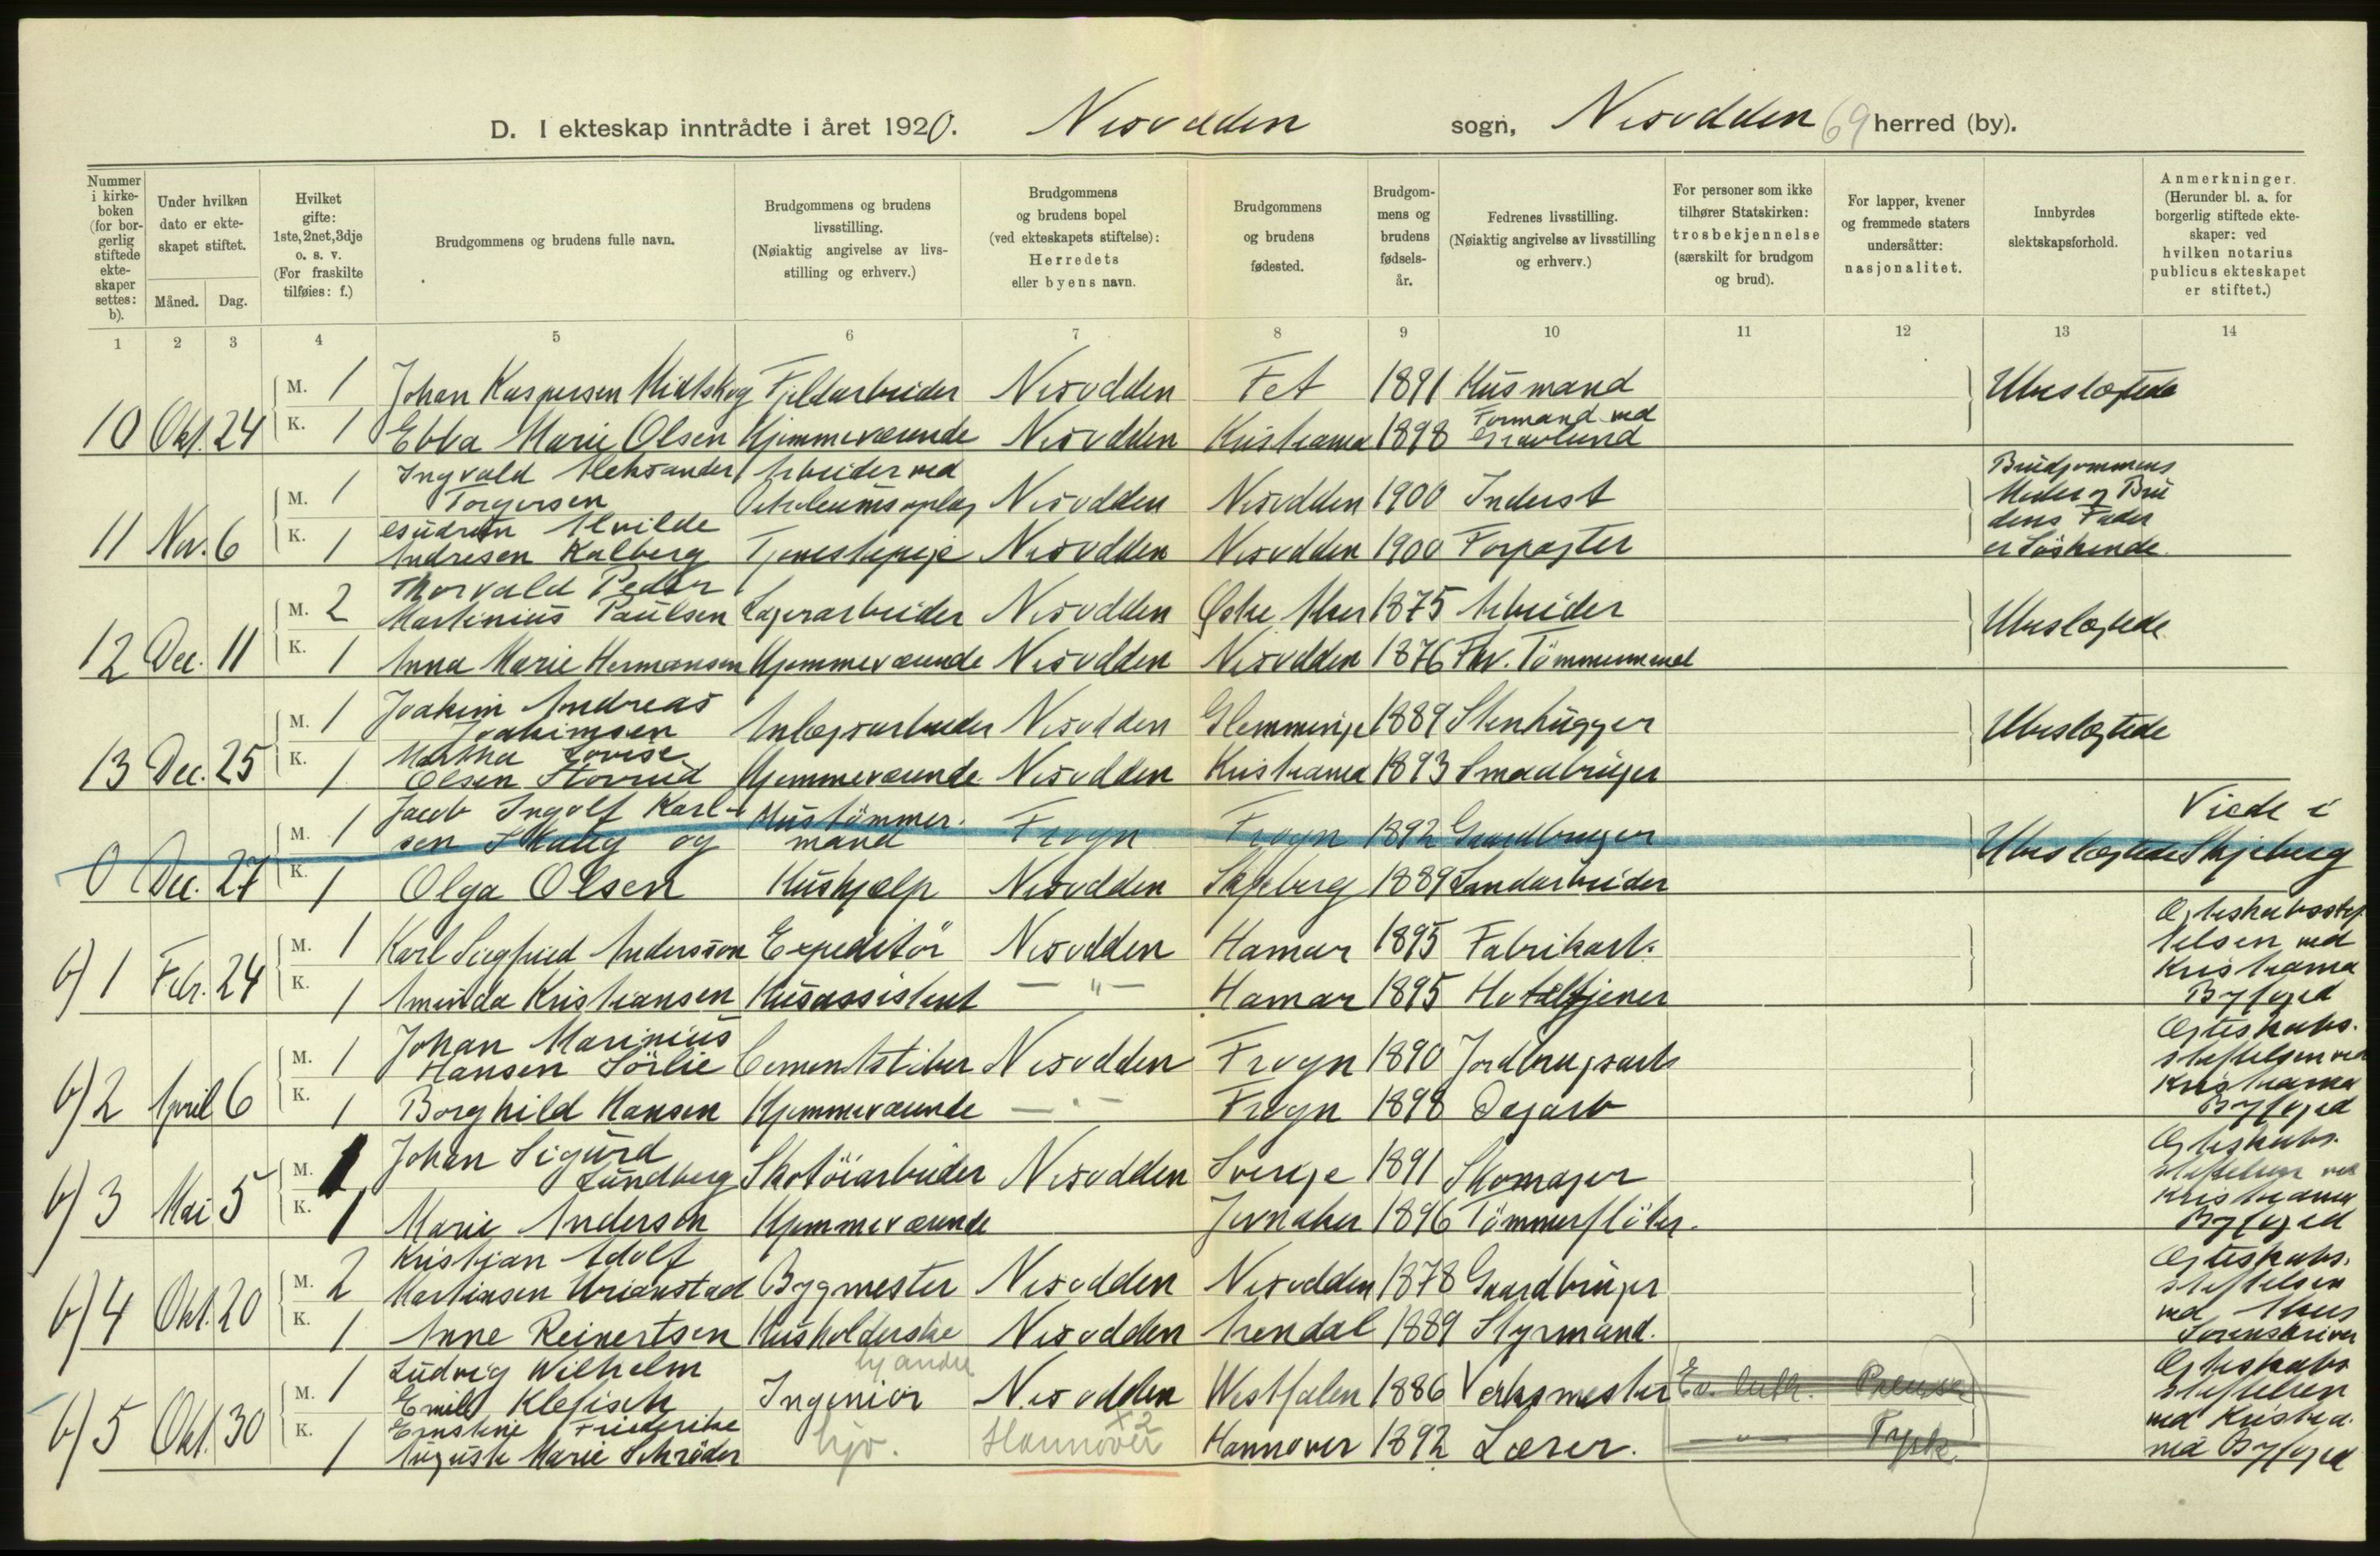 D. I ekteskap inntrådte i året 1920. Nesodden sogn, Nesodden 69 herred (by).
Nummer i kirkeboken (for borgerlig stiftede ekteskaper settes: b).
Under hvilken dato er ekteskapet stiftet.
Måned. Dag.
Hvilket gifte: 1ste, 2net, 3dje o. s. v. (For fraskilte tilføies: f.)
Brudgommens og brudens fulle navn.
Brudgommens og brudens livsstilling. (Nøiaktig angivelse av livsstilling og erhverv.)
Brudgommens og brudens bopel (ved ekteskapets stiftelse): Herredets eller byens navn.
Brudgommens og brudens fødested.
Brudgommens og brudens fødselsår.
Fedrenes livsstilling. (Nøiaktig angivelse av livsstilling og erhverv.)
For personer som ikke tilhører Statskirken: trosbekjennelse (særskilt for brudgom og brud).
For lapper, kvener og fremmede staters undersåtter: nasjonalitet.
Innbyrdes slektskapsforhold.
Anmerkninger. (Herunder bl. a. for borgerlig stiftede ekteskaper: ved hvilken notarius publicus ekteskapet er stiftet.)
1 2 3 4 5 6 7 8 9 10 11 12 13 14
M. 1 Johan Kaspersen Midtskog Fjeldarbeider Nesodden Fet 1891 Husmand Ubeslægtede
10 Okt. 24 K. 1 Ebba Marie Olsen Hjemmeværende Nesodden Kristiania 1898 Formand ved Gravlund
M. 1 Ingvald Aleksander Torgersen Arbeider ved Petroleumsoplag Nesodden Nesodden 1900 Inderst Brudgommens Moder og Brudens Fader er Söskende
11 Nov. 6 K. 1 Gudrun Alvilde Andresen Kalberg Tjenestepige Nesodden Nesodden 1900 Forpagter
M. 2 Thorvald Peder Martinius Paulsen Lagerarbeider Nesodden Østre Aker 1875 Arbeider Ubeslægtede
12 Dec. 11 K. 1 Anna Marie Hermansen Hjemmeværende Nesodden Nesodden 1876 Fhv. Tömmermand
M. 1 Joakim Andreas Joakimsen Anlægsarbeider Nesodden Glemminge 1889 Stenhugger Ubeslægtede
13 Dec. 25 K. 1 Martha Lovise Olsen Stovrud Hjemmeværende Nesodden Kristiania 1893 Smaabruger
M. 1 Jacob Ingolf Karlsen Skaug og Hustömmermand Frogn Frogn 1892 Gaardbruger Ubeslægtede Viede i Skjeberg
0 Dec. 27 K. 1 Olga Olsen Hushjælp Nesodden Skjeberg 1889 Landarbeider
M. 1 Karl Siegfried Andersson Expeditör Nesodden Hamar 1895 Fabrikarb. Egteskabsstiftelsen ved Kristiania Byfoged
b) 1 Febr. 24 K. 1 Aminda Kristiansen Husassistent — " — Hamar 1895 Hoteltjener
M. 1 Johan Marinius Hansen Sörlie Cementstöber Nesodden Frogn 1890 Jordbrugsarb Egteskabsstiftelsen ved Kristiania Byfoged
b) 2 April 6 K. 1 Borghild Hansen Hjemmeværende — " — Frogn 1898 Dagarb
M. 1 Johan Sigurd Lundberg Skotöiarbeider Nesodden Sverige 1891 Skomager Egteskabsstiftelsen ved Kristiania Byfoged
b) 3 Mai 5 K. 1 Marie Anderson Hjemmeværende Jevnaker 1896 Tömmerflöter.
M. 2 Kristjan Adolf Martinsen Uranstad Bygmester Nesodden Nesodden 1878 Gaardbruger Egteskabsstiftelsen ved Akers Sorenskriver
b) 4 Okt. 20 K. 1 Anne Reinertsen Husholderske Nesodden Arendal 1889 Styrmand.
hj andre
M. 1 Ludvig Wilhelm Emil Klefisch Ingeniör Nesodden Westfalen 1886 Verksmester Ev. luth. Preusser Egteskabsstiftelsen ved Kristia. ved Byfoged
b) 5 Okt. 30 K. 1 Ernstine Friederike Auguste Marie Schröder hjv. Hannover x2 Hannover 1892 Lærer. — " — Tysk.